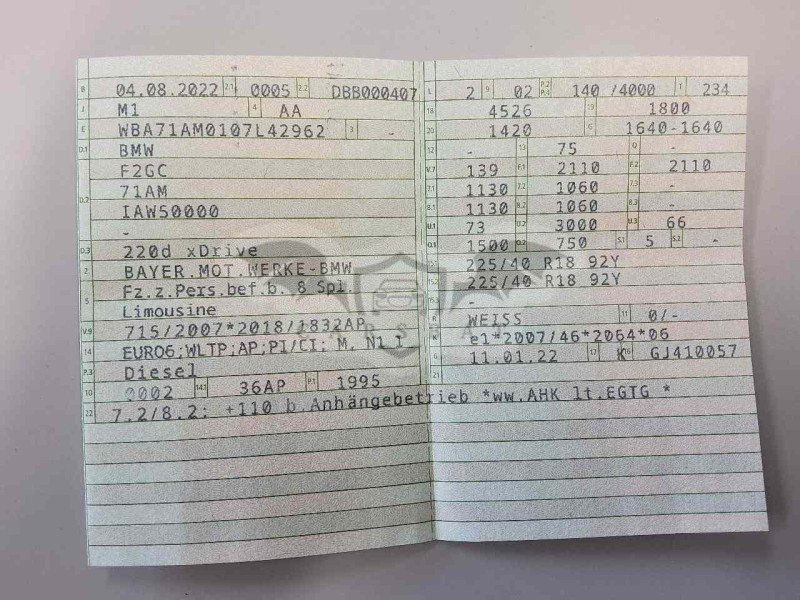 B 04.08.2022 2.1 0005 2.2 DBB000407
J M1 4 AA
E WBA71AM0107L42962 3 -
D.1 BMW
F2GC
D.2 71AM
IAW50000
-
D.3 220d xDrive
2 BAYER.MOT.WERKE-BMW
Fz.z.Pers.bef.b. 8 Spl.
5 Limousine
V.9 715/2007*2018/1832AP
14 EURO6;WLTP;AP;PI/CI; M, N1 I
P.3 Diesel
10 0002 14.1 36AP P.1 1995
22 7.2/8.2: +110 b.Anhängebetrieb *ww.AHK lt.EGTG *
L 2 9 02 P.2 P.4 140 /4000 T 234
18 4526 19 1800
20 1420 G 1640-1640
12 - 13 75 Q -
V.7 139 F.1 2110 F.2 2110
7.1 1130 7.2 1060 7.3 -
8.1 1130 8.2 1060 8.3 -
U.1 73 U.2 3000 U.3 66
O.1 1500 O.2 750 S.1 5 S.2 -
225/40 R18 92Y
225/40 R18 92Y
-
R WEISS 11 0/-
K e1*2007/46*2064*06
6 11.01.22 17 K 16 GJ410057
21